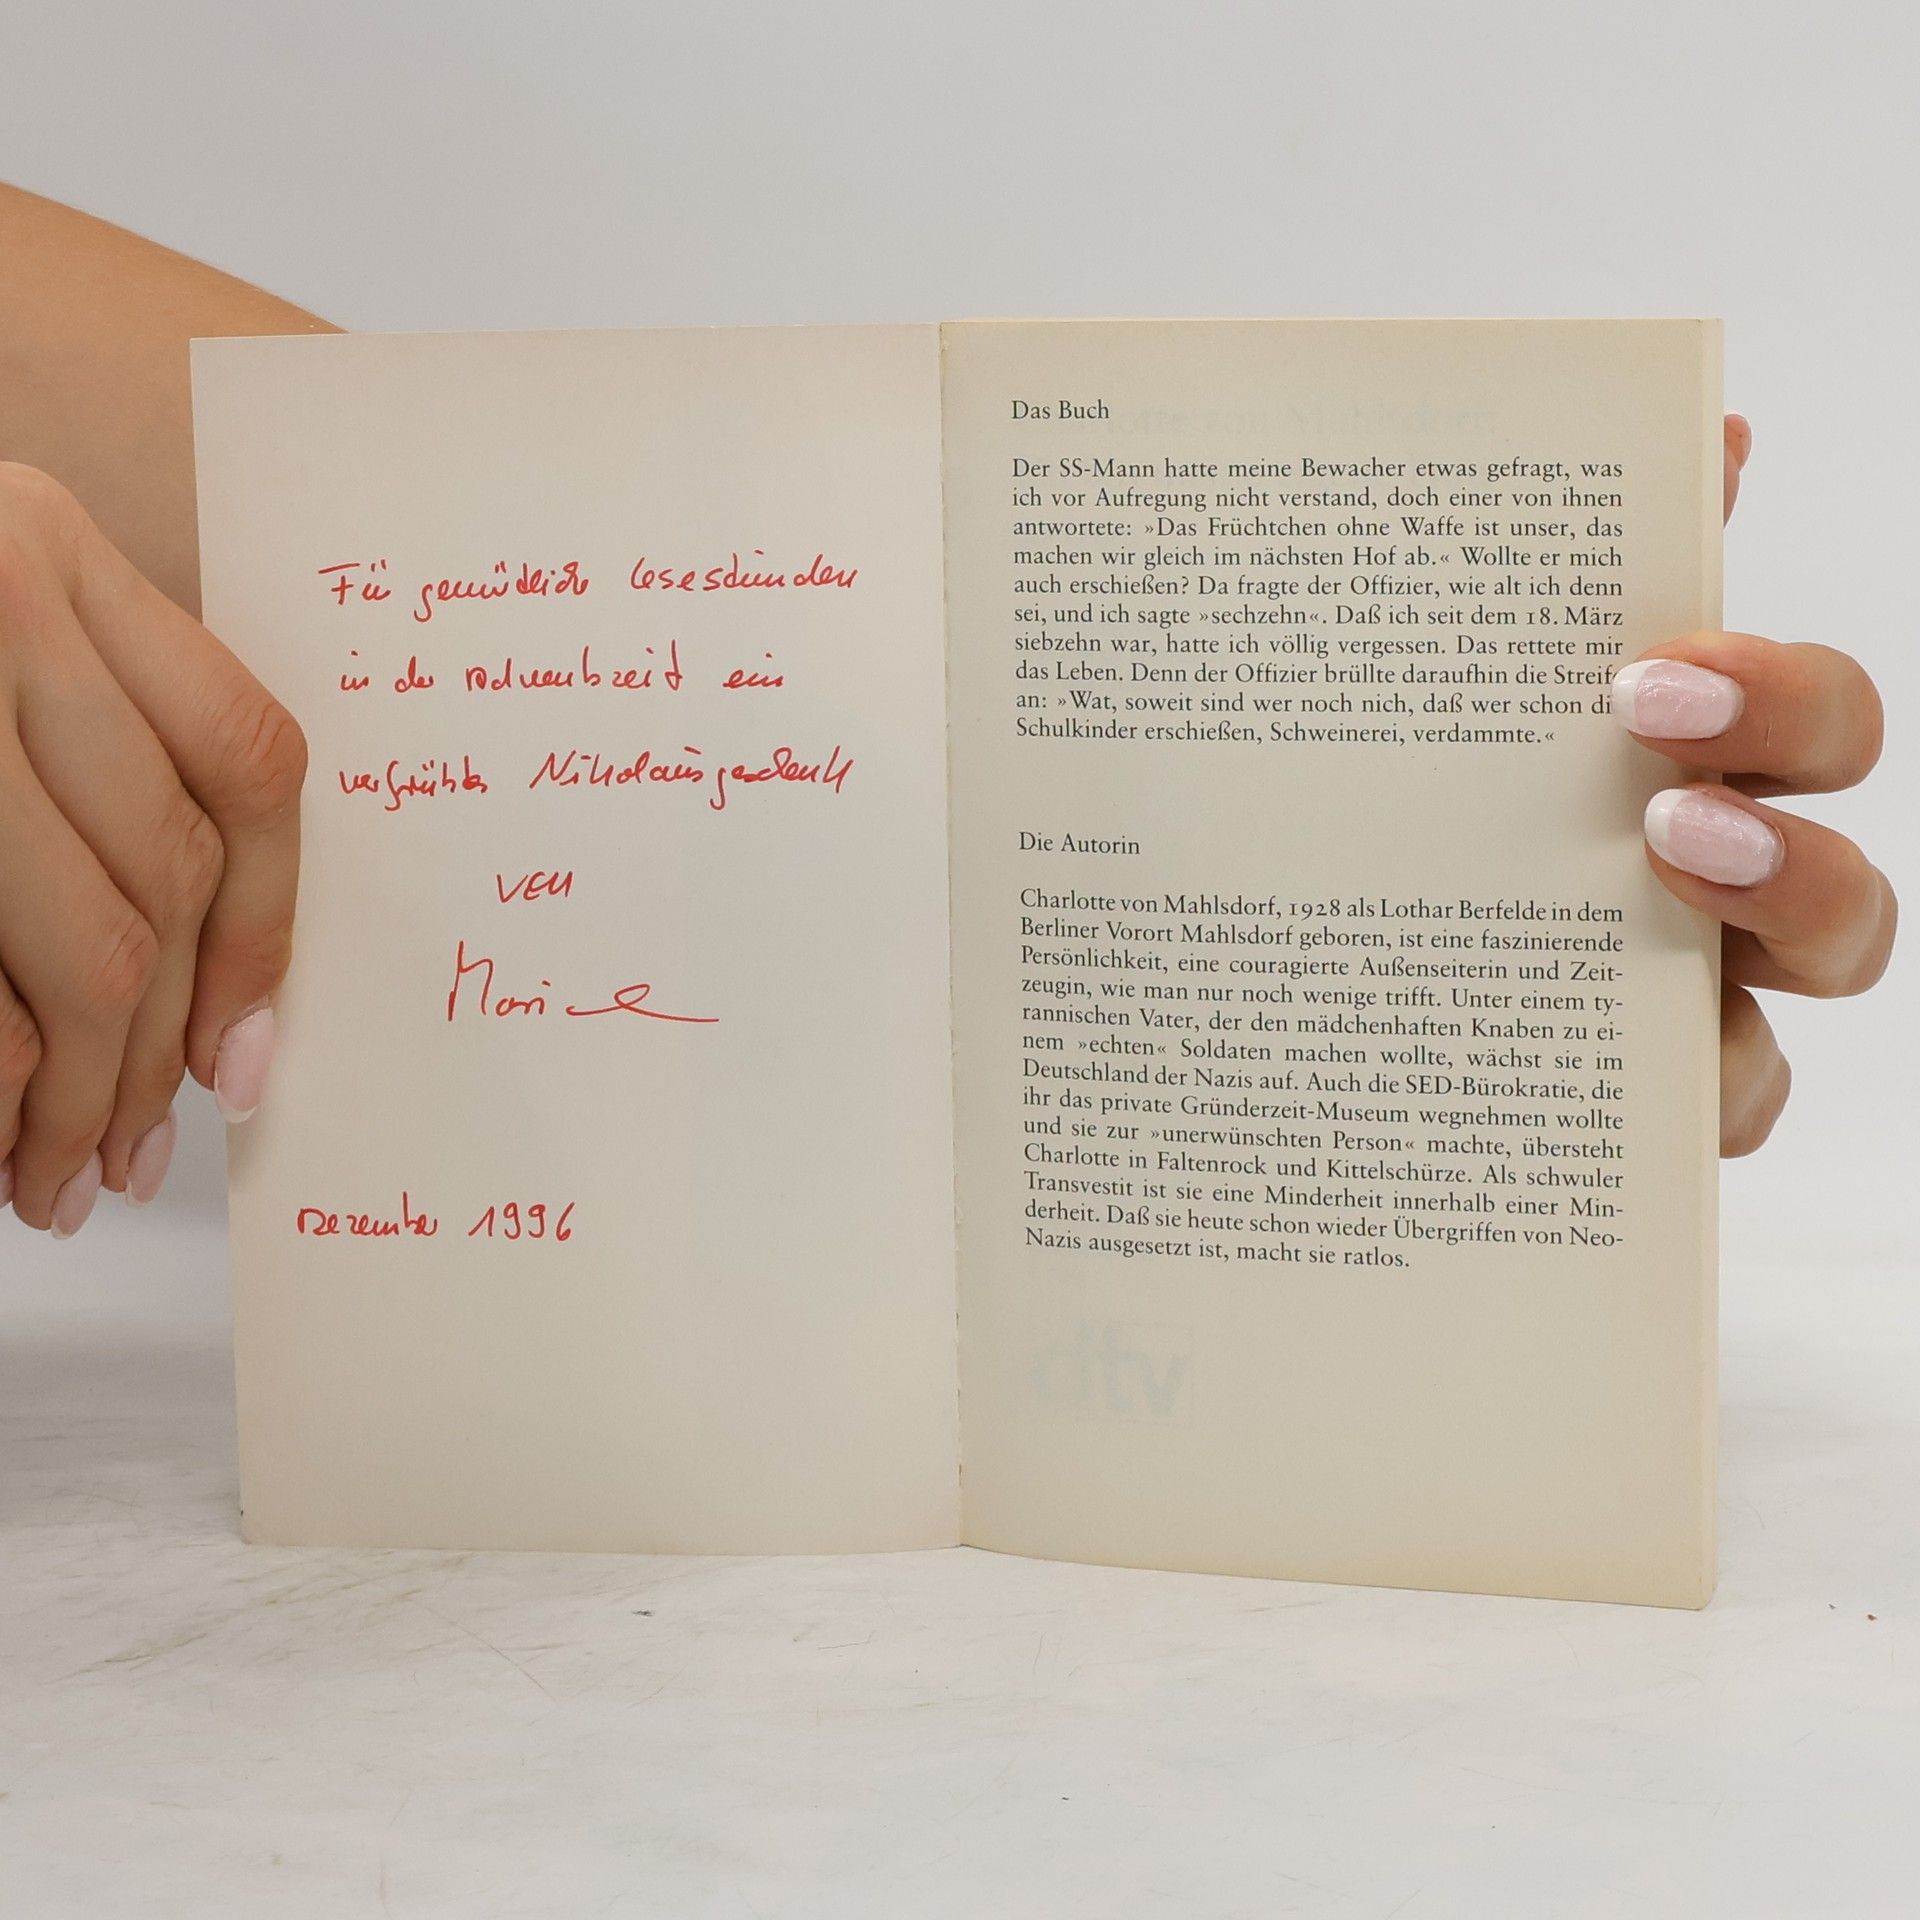 Für gemütliche Lesestunden
in der Adventszeit ein
verfrühtes Nikolausgeschenk
von
Dezember 1996
Das Buch
Der SS-Mann hatte meine Bewacher etwas gefragt, was
ich vor Aufregung nicht verstand, doch einer von ihnen
antwortete: »Das Früchtchen ohne Waffe ist unser, das
machen wir gleich im nächsten Hof ab.« Wollte er mich
auch erschießen? Da fragte der Offizier, wie alt ich denn
sei, und ich sagte »sechzehn«. Daß ich seit dem 18. März
siebzehn war, hatte ich völlig vergessen. Das rettete mir
das Leben. Denn der Offizier brüllte daraufhin die Streife
an: »Wat, soweit sind wer noch nich, daß wer schon di
Schulkinder erschießen, Schweinerei, verdammte.«
Die Autorin
Charlotte von Mahlsdorf, 1928 als Lothar Berfelde in dem
Berliner Vorort Mahlsdorf geboren, ist eine faszinierende
Persönlichkeit, eine couragierte Außenseiterin und Zeit-
zeugin, wie man nur noch wenige trifft. Unter einem ty-
rannischen Vater, der den mädchenhaften Knaben zu ei-
nem »echten« Soldaten machen wollte, wächst sie im
Deutschland der Nazis auf. Auch die SED-Bürokratie, die
ihr das private Gründerzeit-Museum wegnehmen wollte
und sie zur »unerwünschten Person« machte, übersteht
Charlotte in Faltenrock und Kittelschürze. Als schwuler
Transvestit ist sie eine Minderheit innerhalb einer Min-
derheit. Daß sie heute schon wieder Übergriffen von Neo-
Nazis ausgesetzt ist, macht sie ratlos.